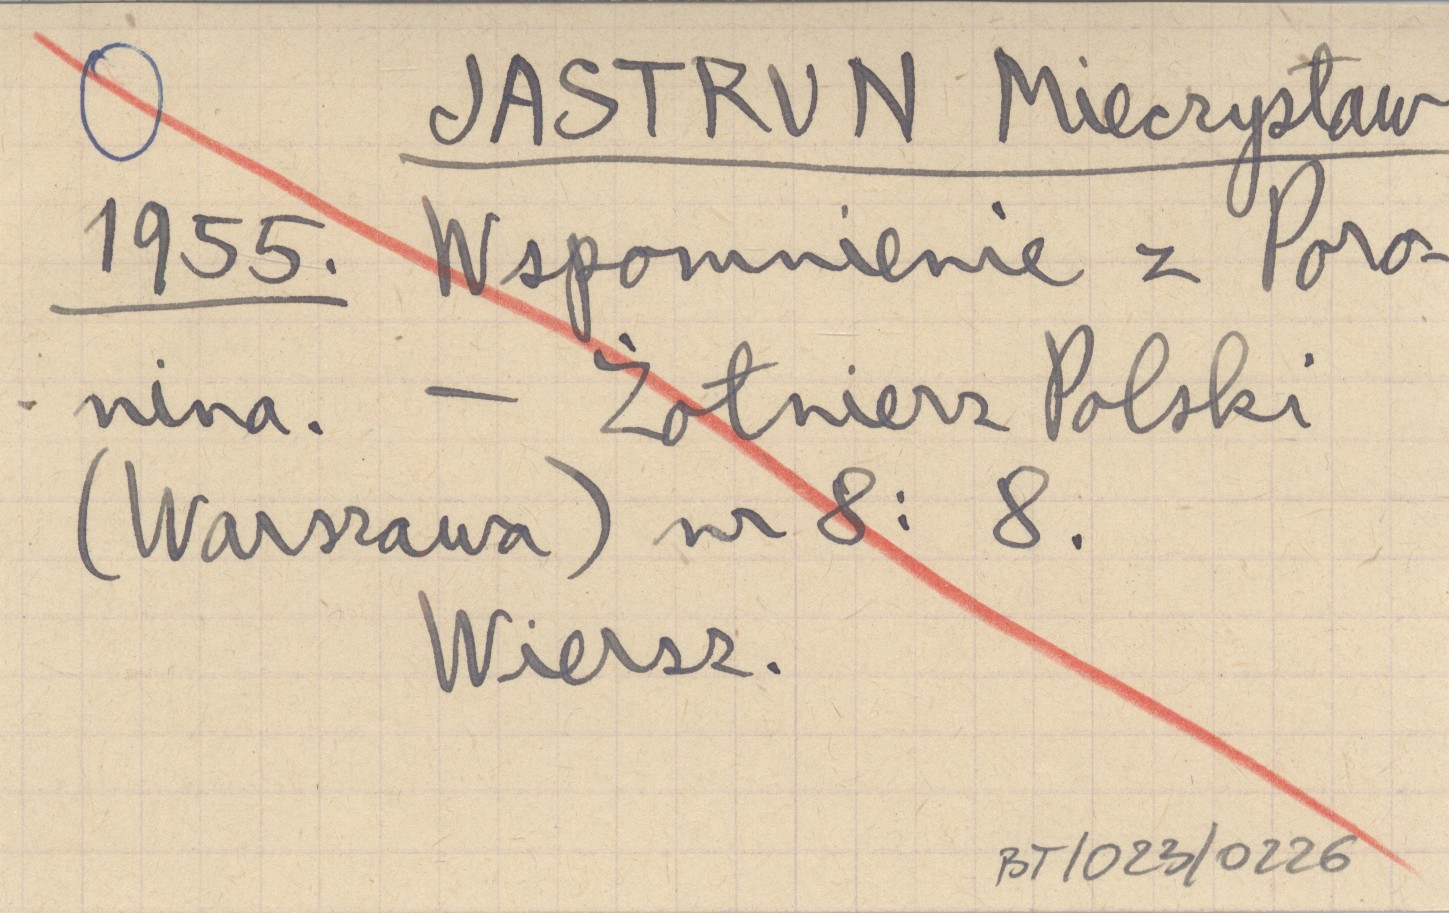 JASTRUN Mieczysław
1955. Wspomnienie z Poro-
nina. — Żołnierz Polski
(Warszawa) nr 8: 8.
Wiersz.
BT/023/0226